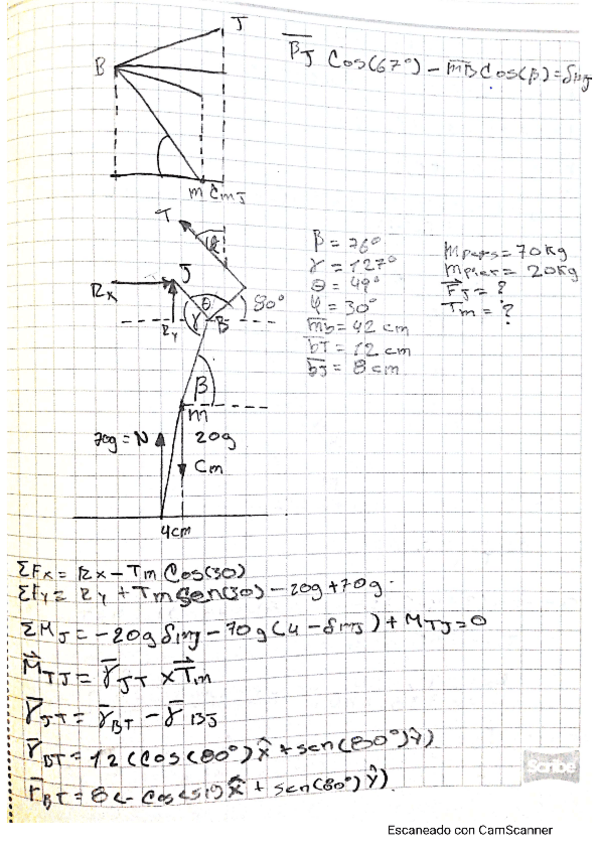 J
B
m Cmj
B̅J̅ Cos(67°) - m̅B̅ Cos(β) = δmj
T
φ
J
Rx
θ
80°
Ry
γ
B
β
m
70g = N
20g
Cm
4cm
β = 76°
γ = 127°
θ = 49°
φ = 30°
m̅b̅ = 42 cm
b̅T̅ = 12 cm
b̅J̅ = 8 cm
mpers = 70kg
mpier = 20kg
F⃗J = ?
Tm = ?
ΣFx = Rx - Tm Cos(30)
ΣFy = Ry + Tm Sen(30) - 20g + 70g.
ΣMJ = -20g δmj - 70g (4 - δmj) + MTJ = 0
M⃗TJ = r̅JT × T⃗m
r̅JT = r̅BT - r̅BJ
r̅BT = 12 (Cos(80°) x̂ + sen(80°) ŷ)
r̅BT = 8 (- Cos(51) x̂ + sen(80°) ŷ).
Scribe
Escaneado con CamScanner